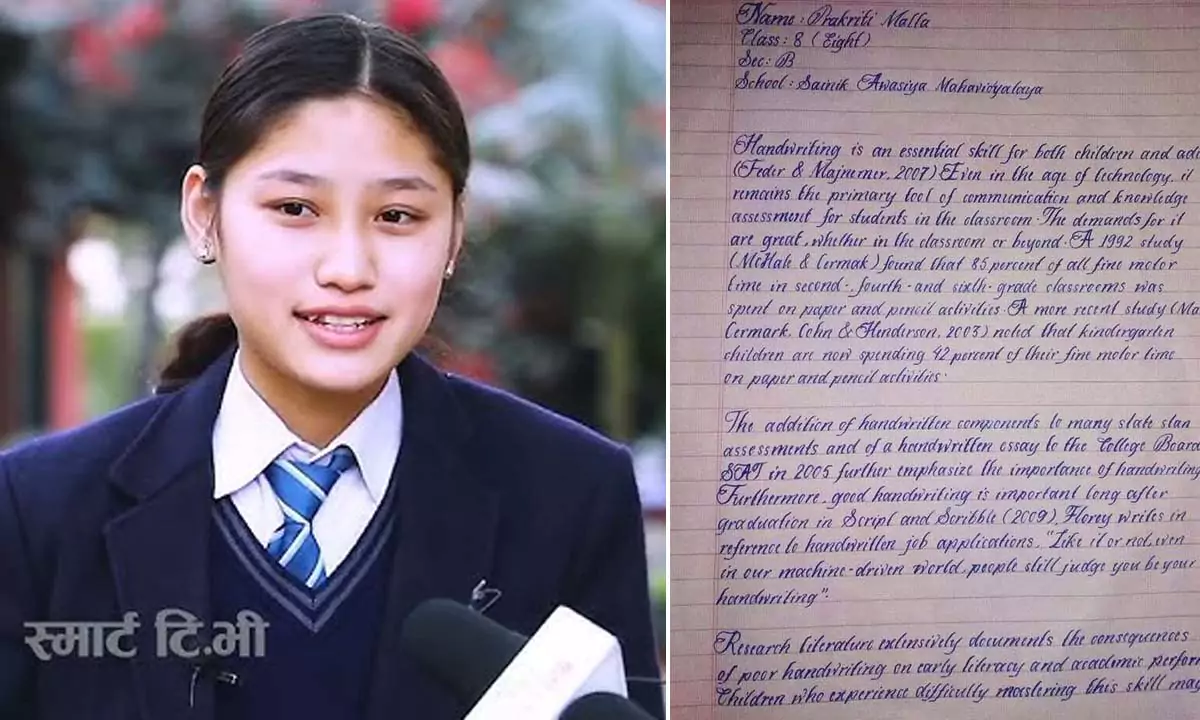 स्मार्ट टि.भी
Name: Prakriti Malla
Class: 8 (Eight)
Sec: B
School: Sainik Awasiya Mahavidyalaya
Handwriting is an essential skill for both children and adu
(Feder & Majnemer, 2007) Even in the age of technology, it
remains the primary tool of communication and knowledge
assessment for students in the classroom. The demands for it
are great, whether in the classroom or beyond. A 1992 study
(McHale & Cermak) found that 85 percent of all fine motor
time in second-, fourth- and sixth-grade classrooms was
spent on paper and pencil activities. A more recent study (Ma
Cermark, Cohn & Henderson, 2003) noted that kindergarten
children are now spending 42 percent of their fine motor time
on paper and pencil activities.
The addition of handwritten components to many state stan
assessments and of a handwritten essay to the College Board
SAT in 2005 further emphasize the importance of handwriting
Furthermore, good handwriting is important long after
graduation in Script and Scribble (2009), Florey writes in
reference to handwritten job applications, "Like it or not, even
in our machine-driven world, people still judge you be your
handwriting".
Research literature extensively documents the consequences
of poor handwriting on early literacy and academic perform
Children who experience difficulty mastering this skill ma